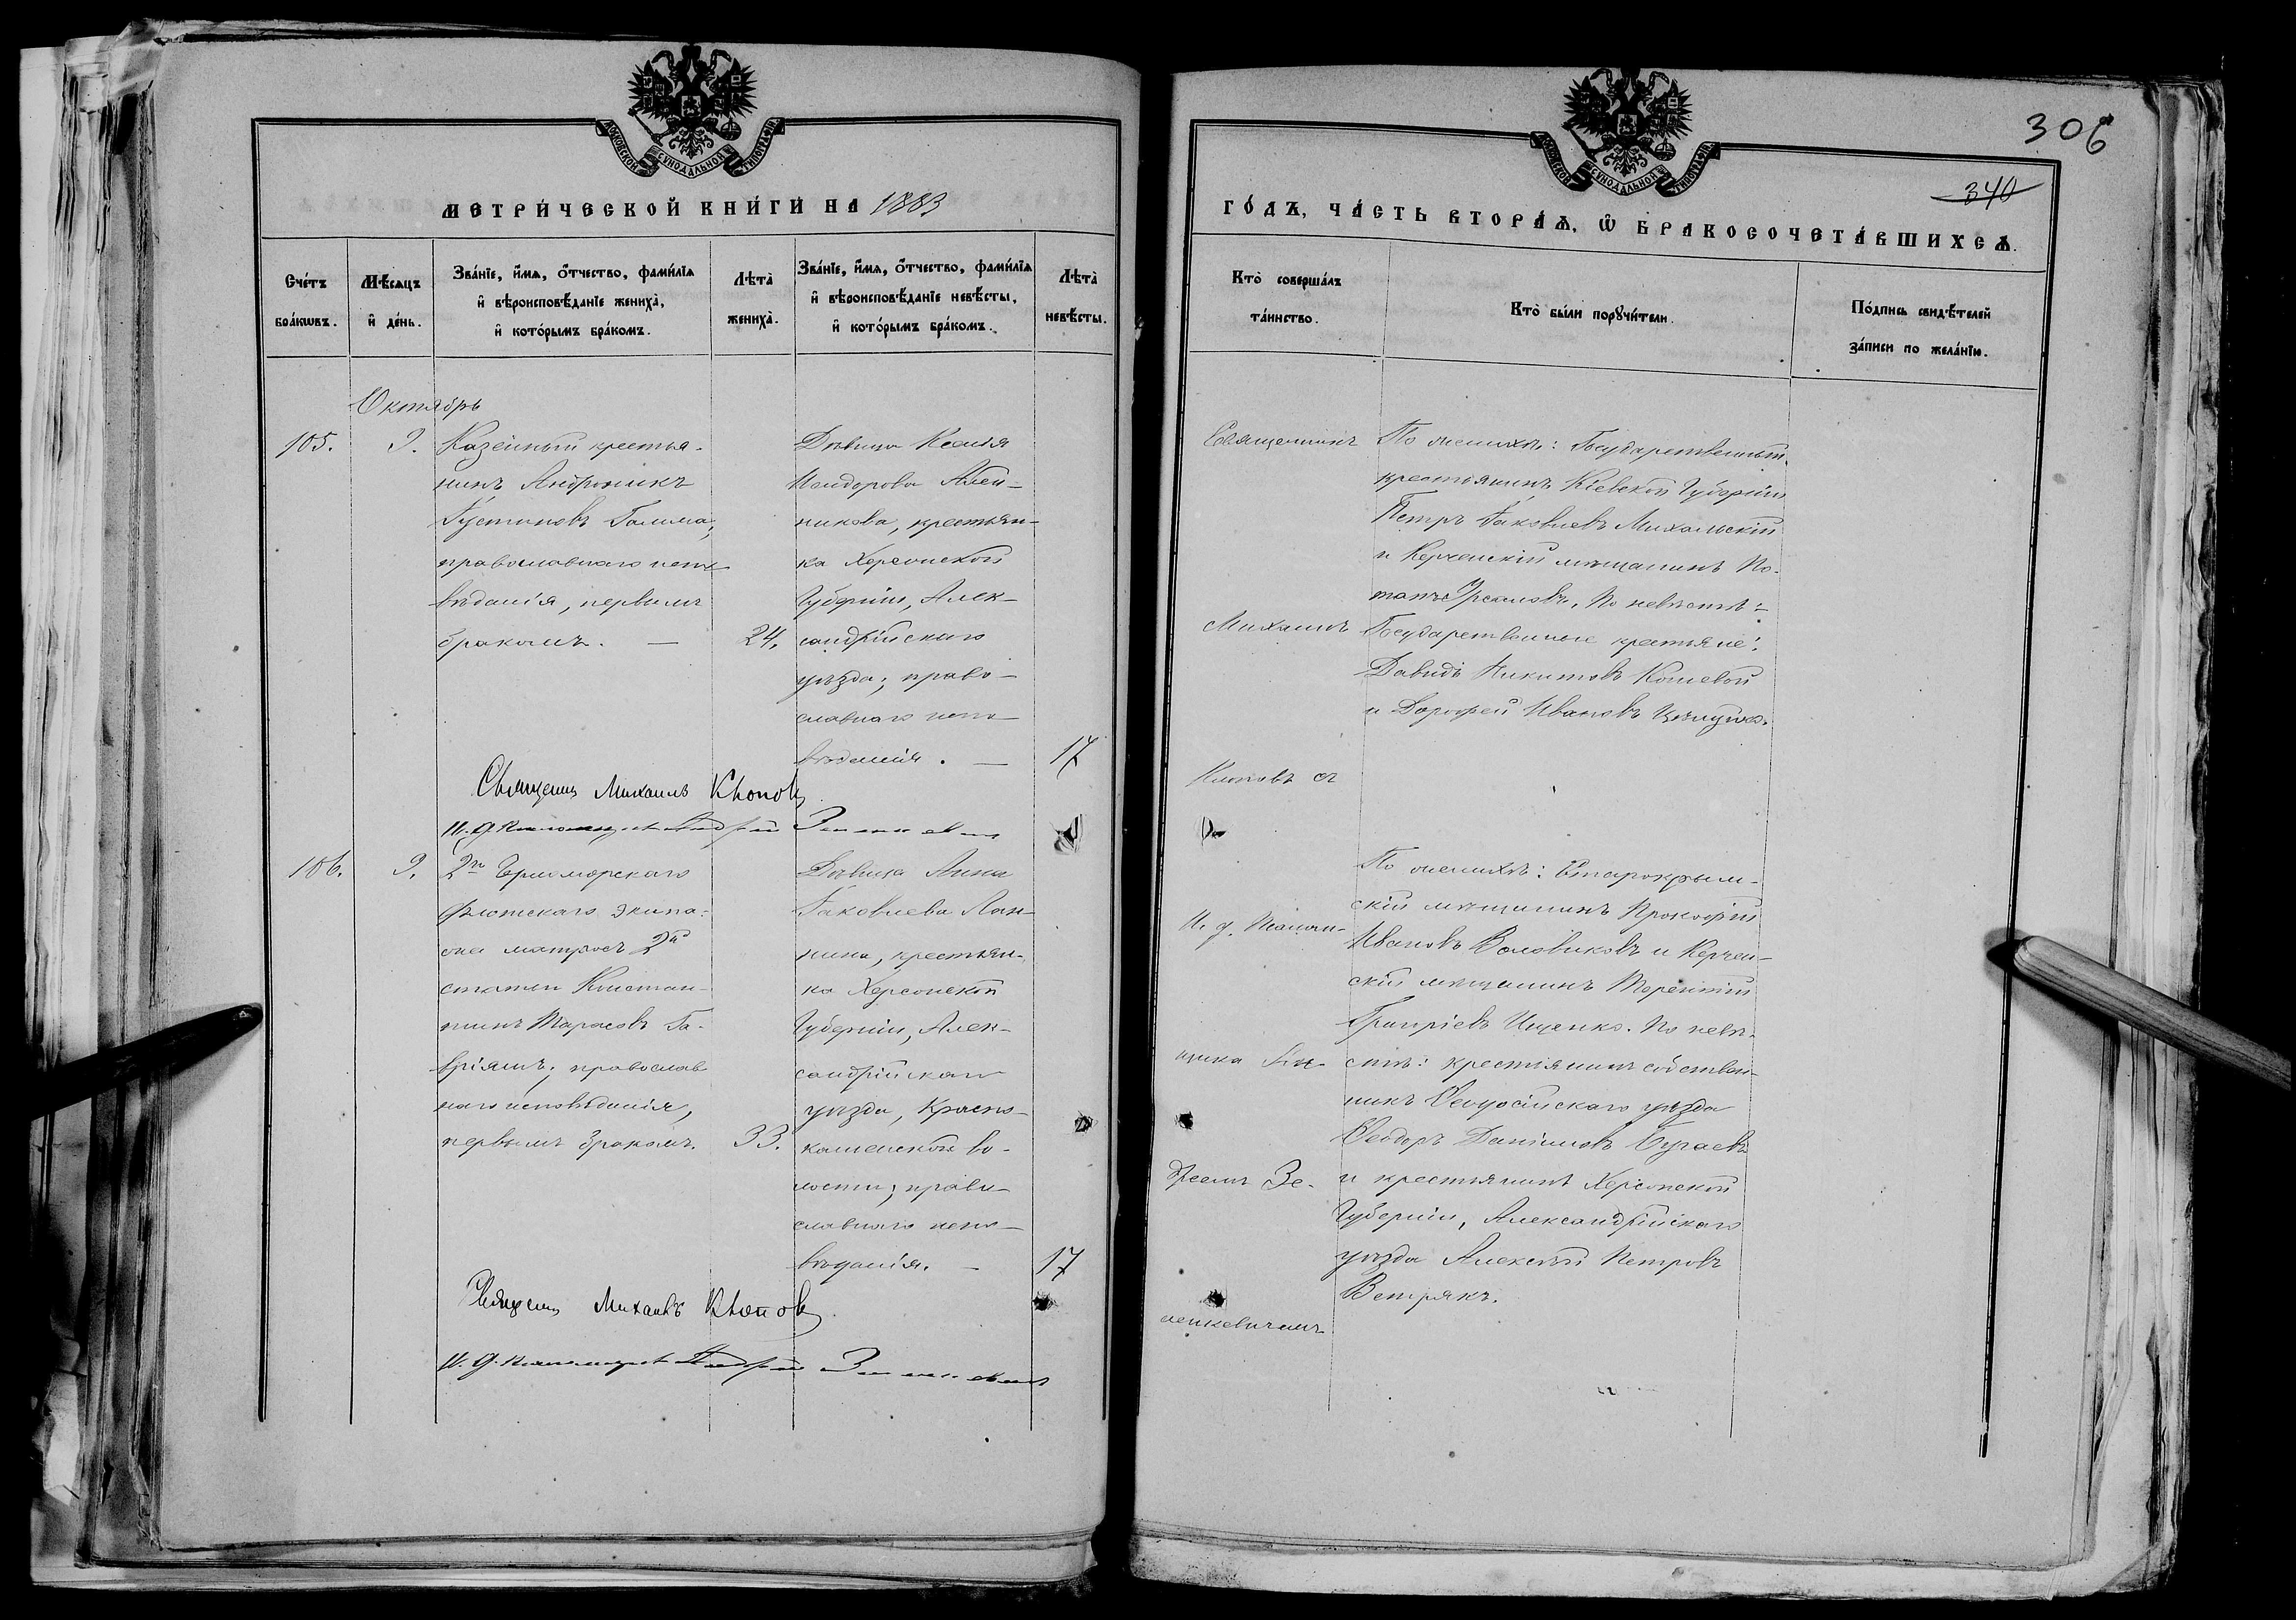 МОСКОВСКОЙ СУНОДАЛЬНОЙ ТИПОГРАФІИ
МЕТРИ́ЧЕСКОЙ КНИ́ГИ НА 1883
Сче́тъ бра́кѡвъ.
Мѣ́сяцъ и҆ де́нь.
Зва́нїе, и҆́мѧ, о҆́тчество, фами́лїѧ
и҆ вѣроисповѣ́данїе жениха̀,
и҆ кото́рымъ бра́комъ.
Лѣта̀ жениха̀.
Зва́нїе, и҆́мѧ, о҆́тчество, фами́лїѧ
и҆ вѣроисповѣ́данїе невѣ́сты,
и҆ кото́рымъ бра́комъ.
Лѣта̀ невѣ́сты.
Октябрь
105.
9.
Казенный крестья-
нинъ Андроникъ
Іустиновъ
православнаго испо-
вѣданія, первымъ
бракомъ. —
24.
Дѣвица Ксенія
Исидорова
никова, крестьян-
ка Херсонской
Губерніи, Алек-
сандрійскаго
уѣзда; право-
славнаго испо-
вѣданія. —
17
Священникъ Михаилъ Клопов
И. д. Псаломщика Андрей
106.
9.
2го Черноморскаго
флотскаго экипа-
жа матросъ 2й
статьи Констан-
тинъ Тарасовъ Га-
вріяшъ; православ
наго исповѣданія,
первымъ бракомъ.
33.
Дѣвица Анна
Іаковлева Лан-
нина, крестьян-
ка Херсонской
Губерніи, Алек-
сандрійскаго
уѣзда, Красно-
каменской во-
лости; право-
славнаго испо-
вѣданія. —
17
Священникъ Михаилъ Клопов
И. д. Псаломщика Андрей
306
340
МОСКОВСКОЙ СУНОДАЛЬНОЙ ТИПОГРАФІИ
ГО́ДЪ, ЧА́СТЬ ВТОРА́Ѧ, Ѡ҆ БРАКОСОЧЕТА́ВШИХСѦ.
Кто̀ соверша́лъ
та́инство.
Кто̀ бы́ли порꙋчи́тели.
По́дпись свидѣ́телей
за́писи по жела́нїю.
Священникъ
Михаилъ
Клоповъ съ
И. д. Псалом-
щика Ан
дреемъ Зе-
ленкевичемъ
По женихѣ: Государственный
крестьянинъ Кіевской Губерніи
Петръ Іаковлевъ Михальскій
и Керченскій мѣщанинъ По-
тапъ По невѣстѣ:
Государственные крестьяне:
Давидъ Никитовъ Кошевой
и Дорофей Ивановъ
По женихѣ: Старокрым-
скій мѣщанинъ Прокофій
Ивановъ Воловиковъ и Керчен-
скій мѣщанинъ Терентій
Григоріевъ Ищенко. По невѣ-
стѣ: крестьянинъ собствен-
никъ Ѳеодосійскаго уѣзда
Ѳеодоръ Даніиловъ Бугаевъ
и крестьянинъ Херсонской
Губерніи, Александрійскаго
уѣзда Алексѣй Петровъ
Ветрякъ.